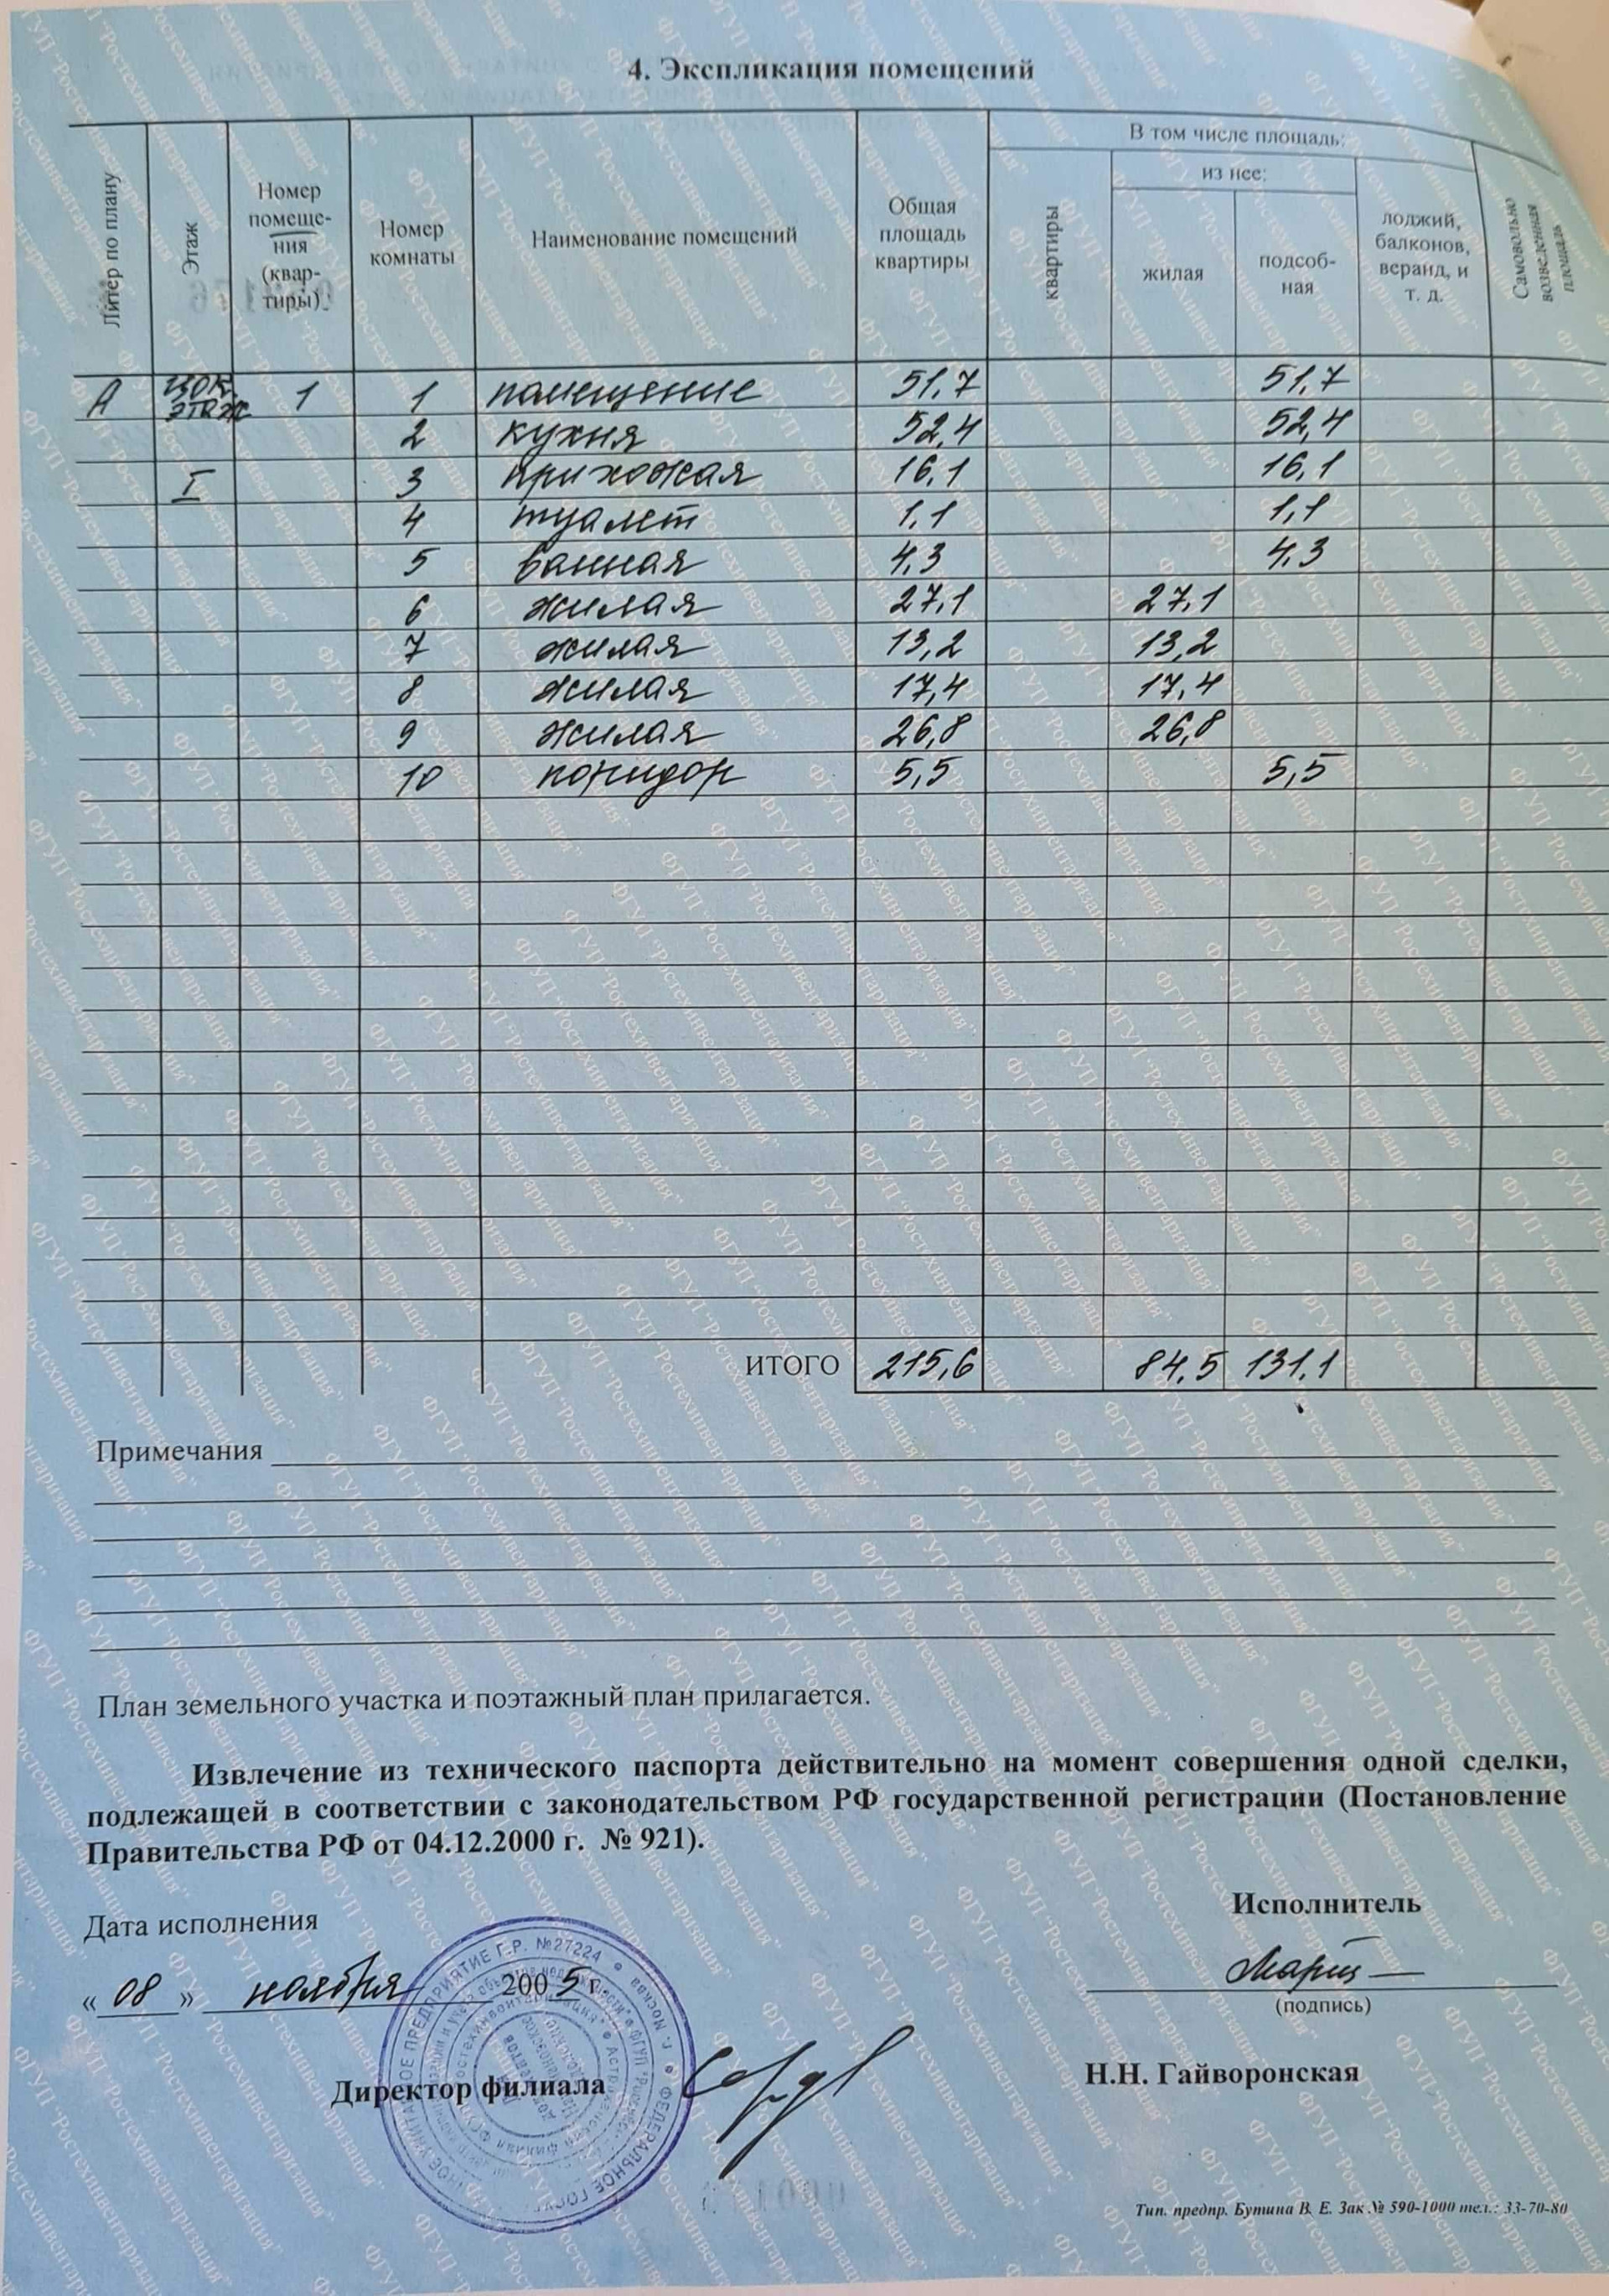 4. Экспликация помещений
Литер по плану
Этаж
Номер помеще-ния (квар-тиры)
Номер комнаты
Наименование помещений
Общая площадь квартиры
В том числе площадь:
квартиры
из нее:
жилая
подсоб-ная
лоджий, балконов, веранд, и т. д.
Самовольно возведенная площадь
А цок. этаж 1 1 помещение 51,7 51,7
2 кухня 52,4 52,4
I 3 прихожая 16,1 16,1
4 туалет 1,1 1,1
5 ванная 4,3 4,3
6 жилая 27,1 27,1
7 жилая 13,2 13,2
8 жилая 17,4 17,4
9 жилая 26,8 26,8
10 коридор 5,5 5,5
ИТОГО 215,6 84,5 131,1
Примечания
План земельного участка и поэтажный план прилагается.
Извлечение из технического паспорта действительно на момент совершения одной сделки,
подлежащей в соответствии с законодательством РФ государственной регистрации (Постановление
Правительства РФ от 04.12.2000 г. № 921).
Дата исполнения
Исполнитель
« 08 » ноября 2005 г
(подпись)
Директор филиала
Н.Н. Гайворонская
Тип. предпр. Бутина В. Е. Зак № 590-1000 тел.: 33-70-80
ФГУП "Ростехинвентаризация"